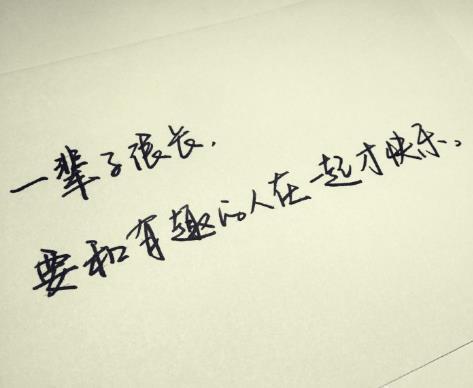 一辈子很长，
要和有趣的人在一起才快乐。